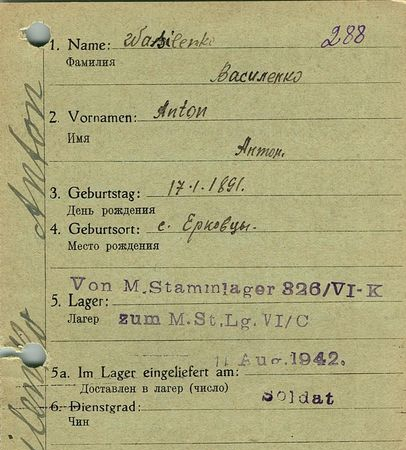 288
1. Name: Wasilenko
Фамилия
Василенко
2. Vornamen: Anton
Имя
Антон.
3. Geburtstag: 17.1.1891.
День рождения
4. Geburtsort: с. Ерковцы.
Место рождения
Von M.Stammlager 326/VI-K
5. Lager:
Лагер zum M.St.Lg.VI/C
11 Aug. 1942.
5a. Im Lager eingeliefert am:
Доставлен в лагер (число)
Soldat
6. Dienstgrad:
Чин
Anton